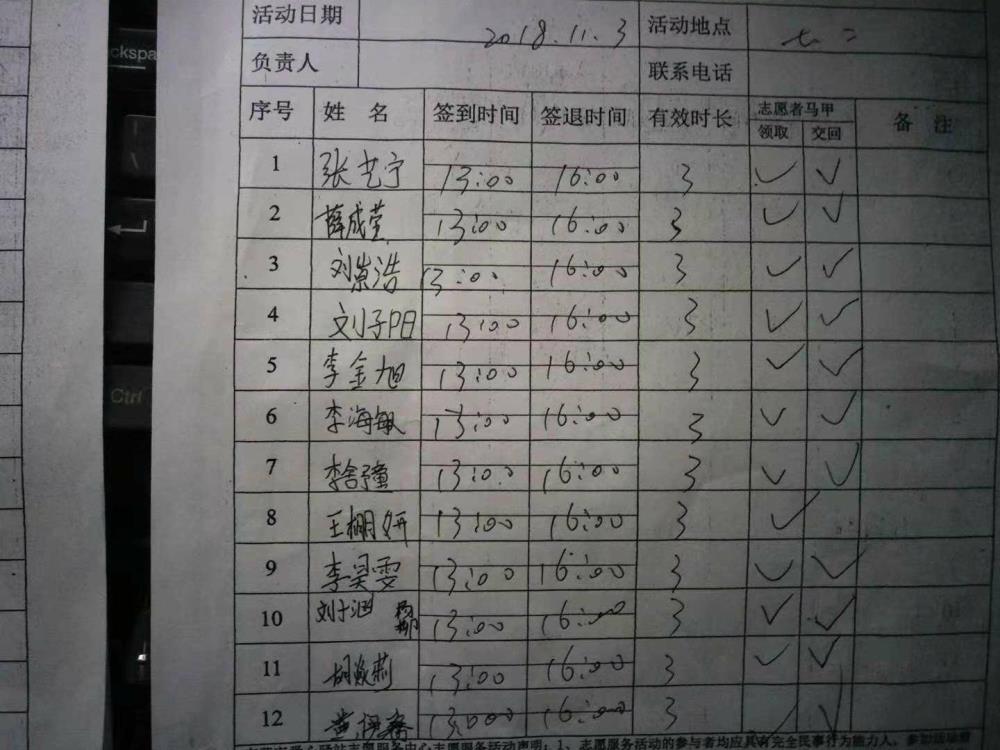 ckspa
Ctrl
活动日期 2018.11.3 活动地点 七二
负责人 联系电话
序号 姓名 签到时间 签退时间 有效时长 志愿者马甲 备注
领取 交回
1 张艺宁 13:00 16:00 3 ✓ ✓
2 薛成莹 13:00 16:00 3 ✓ ✓
3 刘崇浩 13:00 16:00 3 ✓ ✓
4 刘子阳 13:00 16:00 3 ✓ ✓
5 李金旭 13:00 16:00 3 ✓ ✓
6 李海敏 13:00 16:00 3 ✓ ✓
7 李舒童 13:00 16:00 3 ✓ ✓
8 王棚妍 13:00 16:00 3 ✓
9 李昊雯 13:00 16:00 3 ✓ ✓
10 刘 13:00 16:00 3 ✓ ✓
11 胡 莉 13:00 16:00 3 ✓ ✓
12 黄 13:00 16:00 3 ✓ ✓
志愿服务中心志愿服务活动声明：1、志愿服务活动的参与者均应具有完全民事行为能力人，参加活动